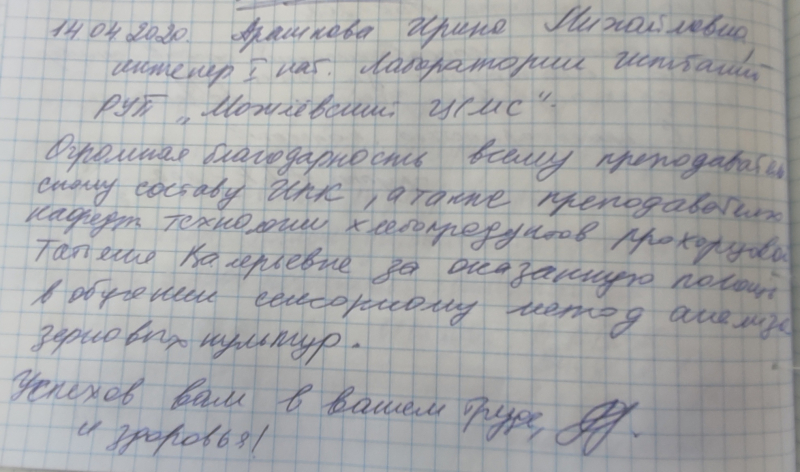 14.04.2020. Арашкова Ирина Михайловна,
инженер I кат. Лаборатории испытаний
РУП „Могилевский ЦСМС".
Огромная благодарность всему преподаватель
скому составу ИПК, а также преподавателю
кафедры технологии хлебопродуктов Прохорцовой
Татьяне Валерьевне за оказанную помощь
в обучении сенсорному метод анализа
зерновых культур.
Успехов вам в вашем труде,
и здоровья!